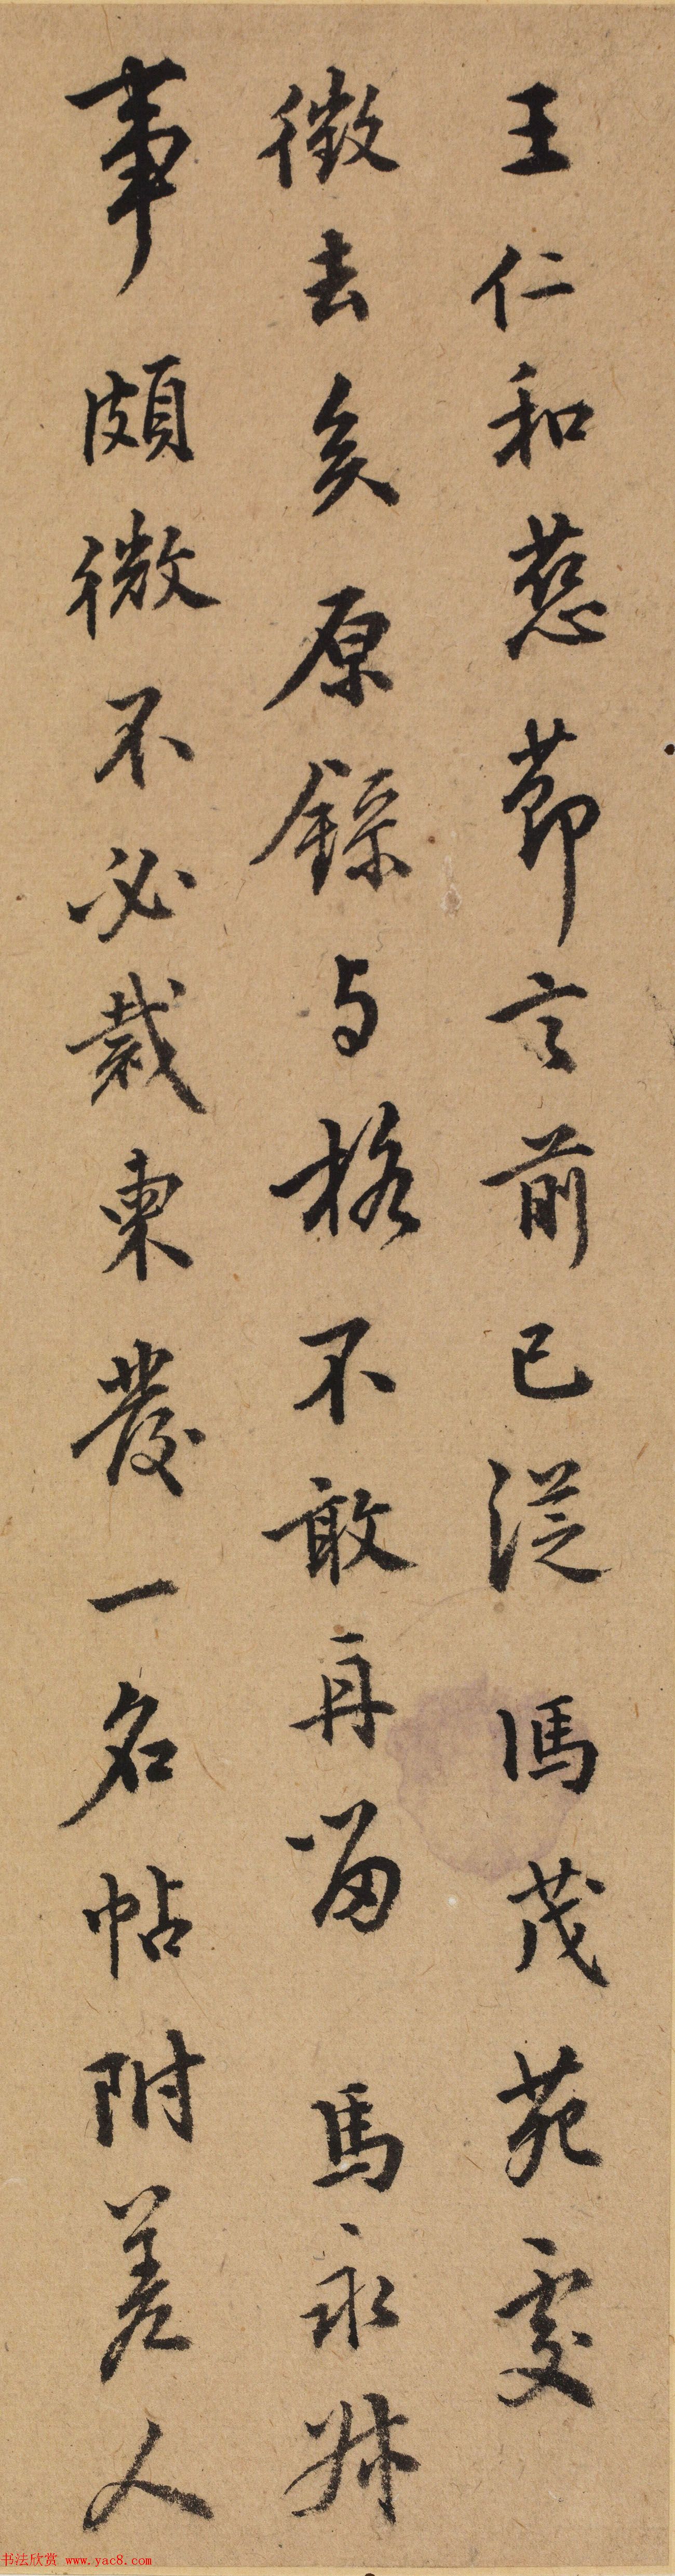 王仁和慈節言前已從馮茂苑處
徵去矣原錄与格不敢再留馬永牀
事頗微不必裁柬發一名帖附差人
书法欣赏 www.yac8.com